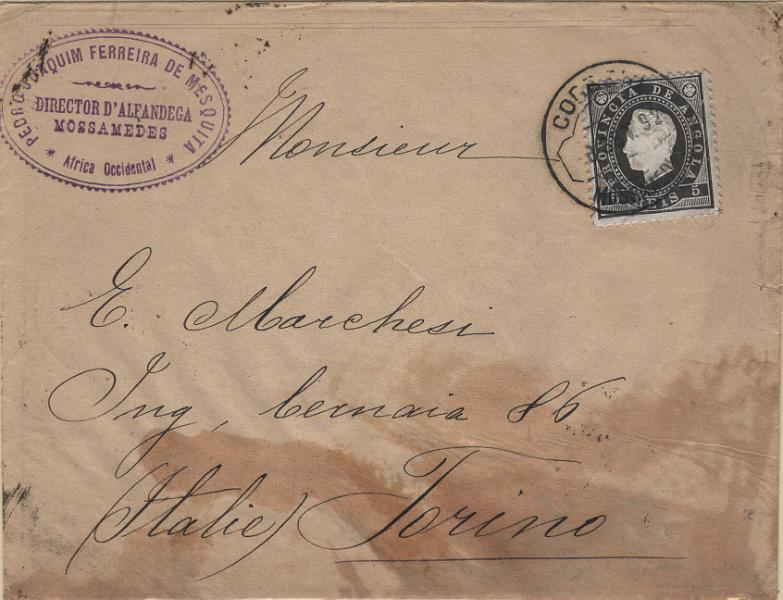 PEDRO JOAQUIM FERREIRA DE MESQUITA
DIRECTOR D'ALFANDEGA
MOSSAMEDES
* Africa Occidental *
PROVINCIA DE ANGOLA
5 REIS 5
Monsieur
E. Marchesi
Ing, Cernaia 86
(Italie) Torino